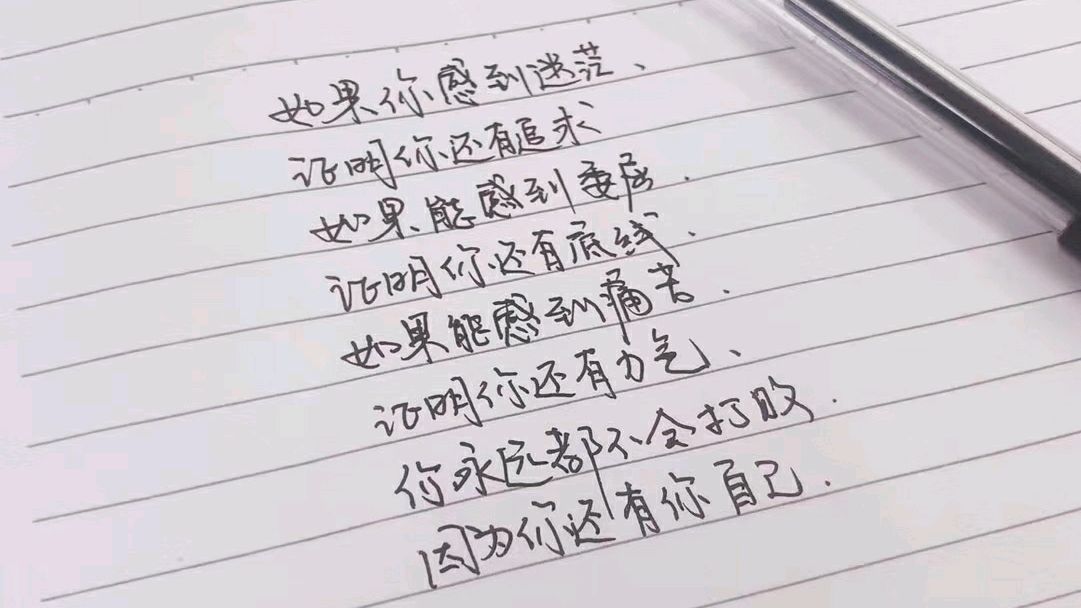 如果你感到迷茫、
证明你还有追求
如果能感到委屈.
证明你还有底线.
如果能感到痛苦.
证明你还有力气、
你永远都不会打败.
因为你还有你自己.